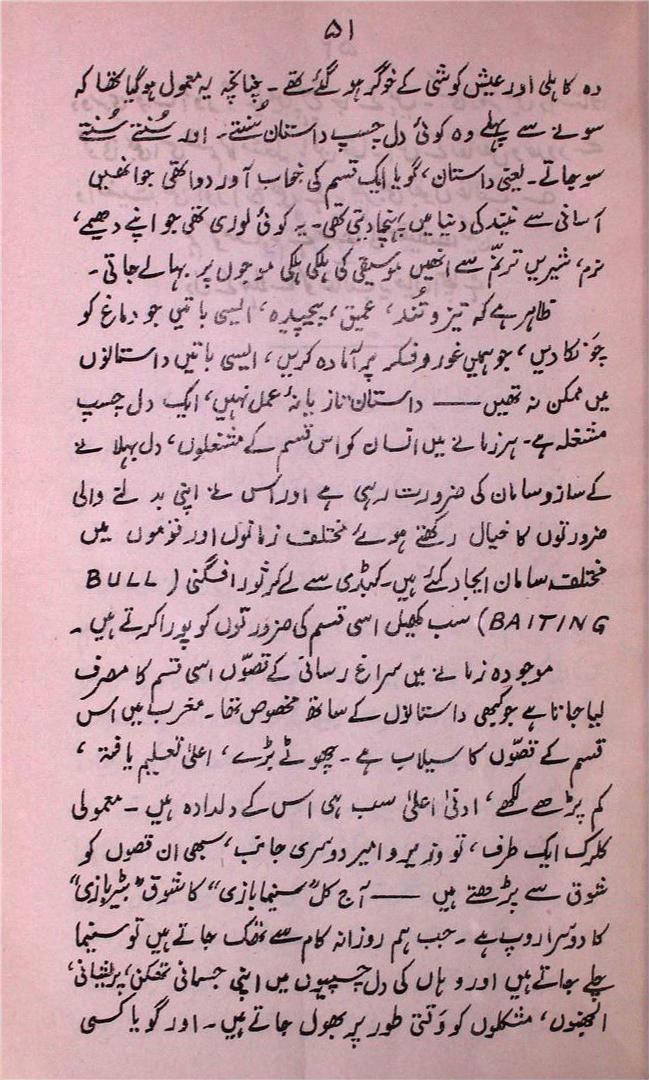 ۵۱
وہ کاہلی اور عیش کوشی کے خوگر ہو گئے تھے۔ چنانچہ یہ معمول ہو گیا تھا کہ
سونے سے پہلے وہ کوئی دل چسپ داستان سُنتے۔ اور سُنتے سُنتے
سو جاتے۔ یعنی داستان، گویا ایک قسم کی خواب آور دوا تھی جو انھیں
آسانی سے نیند کی دنیا میں پہنچا دیتی تھی۔ یہ کوئی لوری تھی جو اپنے دھیمے،
نرم، شیریں ترنّم سے انھیں موسیقی کی ہلکی ہلکی موجوں پر بہالے جاتی۔
ظاہر ہے کہ تیز و تُند، عمیق، پیچیدہ، ایسی باتیں جو دماغ کو
چَونکا دیں، جو ہمیں غور و فکر پر آمادہ کریں، ایسی باتیں داستانوں
میں ممکن نہ تھیں —— داستان تازیانۂ عمل نہیں، ایک دل چسپ
مشغلہ ہے۔ ہر زمانے میں انسان کو اس قسم کے مشغلوں، دل بہلانے
کے ساز و سامان کی ضرورت رہی ہے اور اُس نے اپنی بدلنے والی
ضرورتوں کا خیال رکھتے ہوئے مختلف زمانوں اور قوموں میں
مختلف سامان ایجاد کئے ہیں۔ کبڈی سے لے کر ثور افگنی (BULL
BAITING) سب کھیل اسی قسم کی ضرورتوں کو پورا کرتے ہیں۔
موجودہ زمانے میں سراغ رسانی کے قصّوں اسی قسم کا مصرف
لیا جاتا ہے جو کبھی داستانوں کے ساتھ مخصوص تھا۔ مغرب میں اس
قسم کے قصّوں کا سیلاب ہے۔ چھوٹے بڑے، اعلیٰ تعلیم یافتہ،
کم پڑھے لکھے، ادنیٰ اعلیٰ سب ہی اس کے دلدادہ ہیں۔ معمولی
کلرک ایک طرف، تو وزیر و امیر دوسری جانب، سبھی ان قصوں کو
شوق سے پڑھتے ہیں —— آج کل "سنیما بازی" کا شوق "بٹیر بازی"
کا دوسرا روپ ہے۔ جب ہم روزانہ کام سے تھک جاتے ہیں تو سنیما
چلے جاتے ہیں اور وہاں کی دل چسپیوں میں اپنی جسمانی تھکن، پریشانی،
الجھنوں، مشکلوں کو وَقتی طور پر بھول جاتے ہیں۔ اور گویا کسی